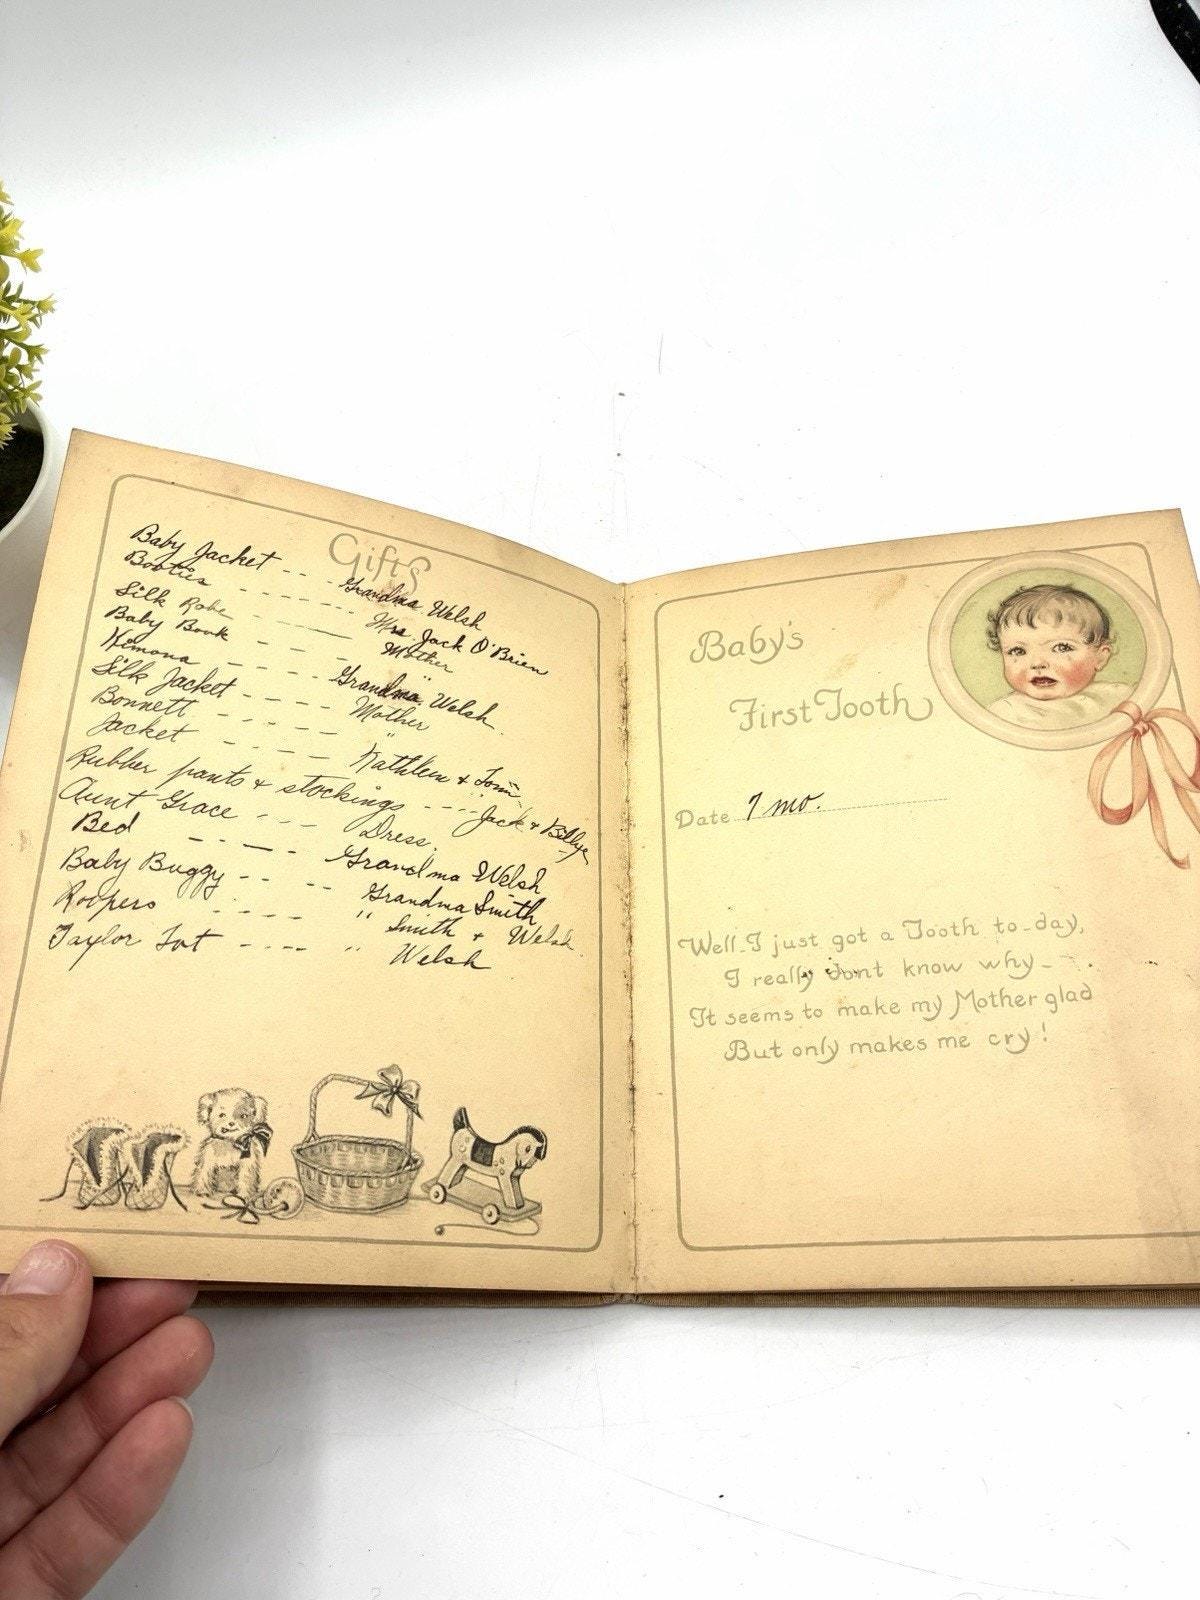 Gifts
Baby Jacket - - - Grandma Welsh
Booties - - - - - - - Mrs. Jack O'Brien
Silk Robe - - - - Mother
Baby Book - - - "
Kimona - - - - - Grandma Welsh
Silk Jacket - - - - Mother
Bonnett - - - - - "
Jacket - - - - Kathleen & Tom
Rubber pants & stockings - - - - Jack & Billye
Aunt Grace - - - Dress.
Bed - - - - - Grandma Welsh
Baby Buggy - - - - Grandma Smith
Rompers - - - - " Smith & Welsh
Taylor Tot - - - - " Welsh
Baby's
First Tooth
Date 7 mo.
Well-I just got a Tooth to-day,
I really dont know why-
It seems to make my Mother glad
But only makes me cry!